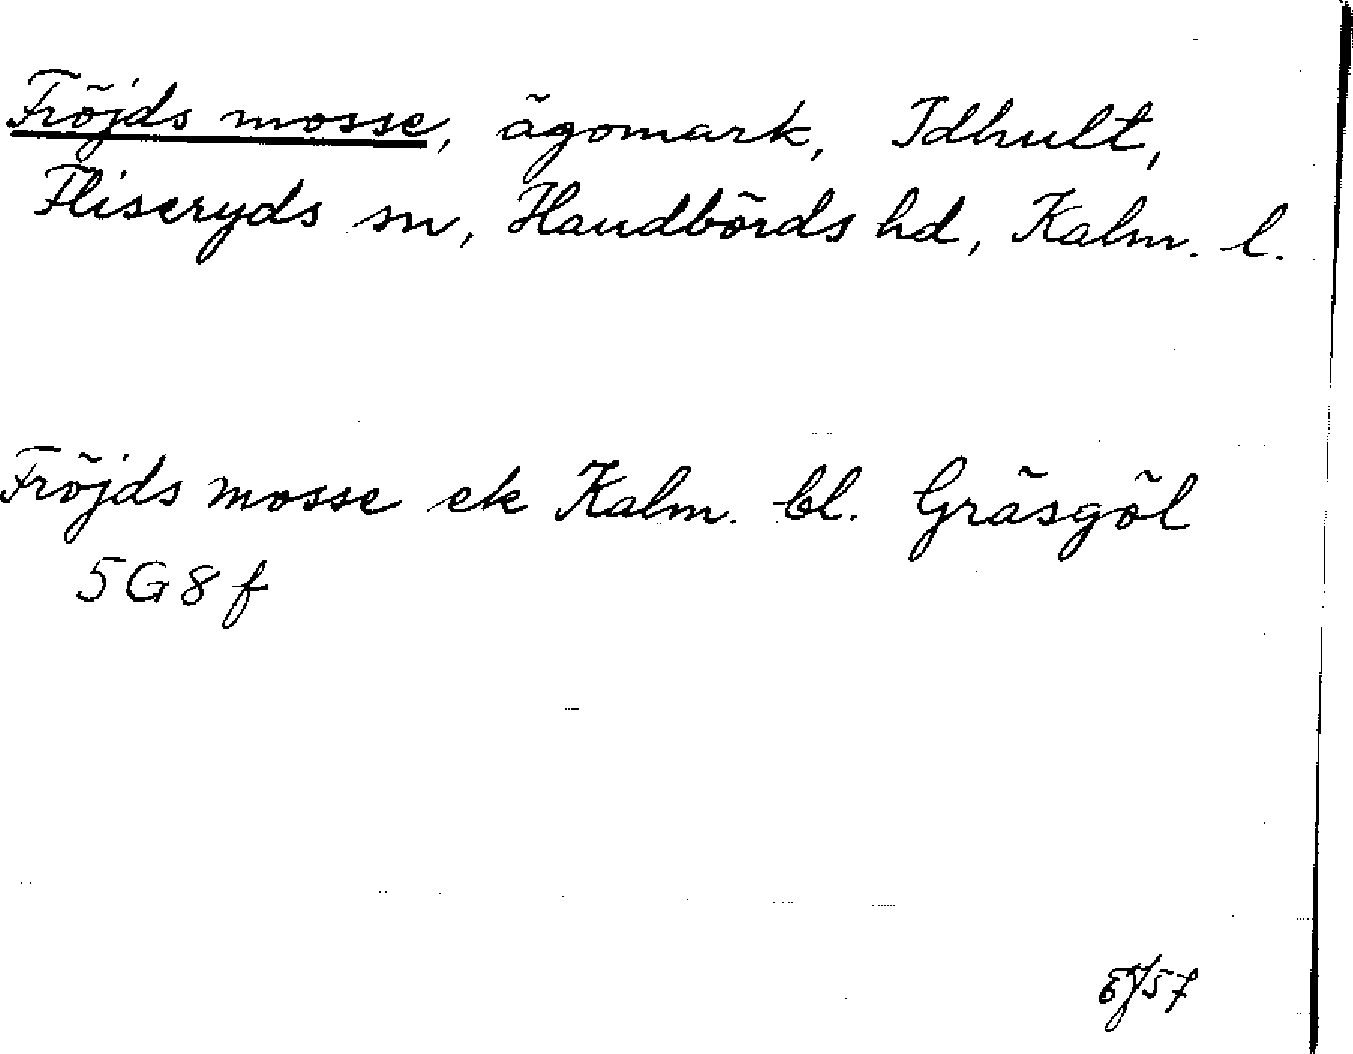 Fröjds mosse, ägomark, Idhult,
Fliseryds sn, Handbörds hd, Kalm. l.
Fröjds mosse ek Kalm. bl. Gräsgöl
5G8f